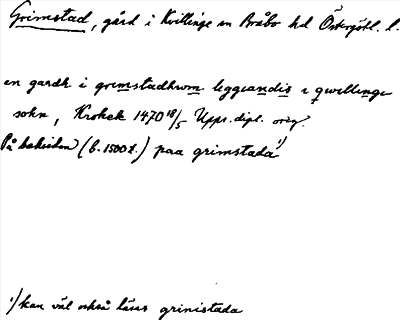 Grimstad, gård i Kvillinge sn Bråbo hd Östergötl. l.
en gardh i grimstadhwm liggiandis i qwillinge
sokn, Krokek 1470 18/5 Upps. dipl. orig.
På baksidan (b. 1500 t.) paa grimstada 1)
1) kan väl också läsas grinistada